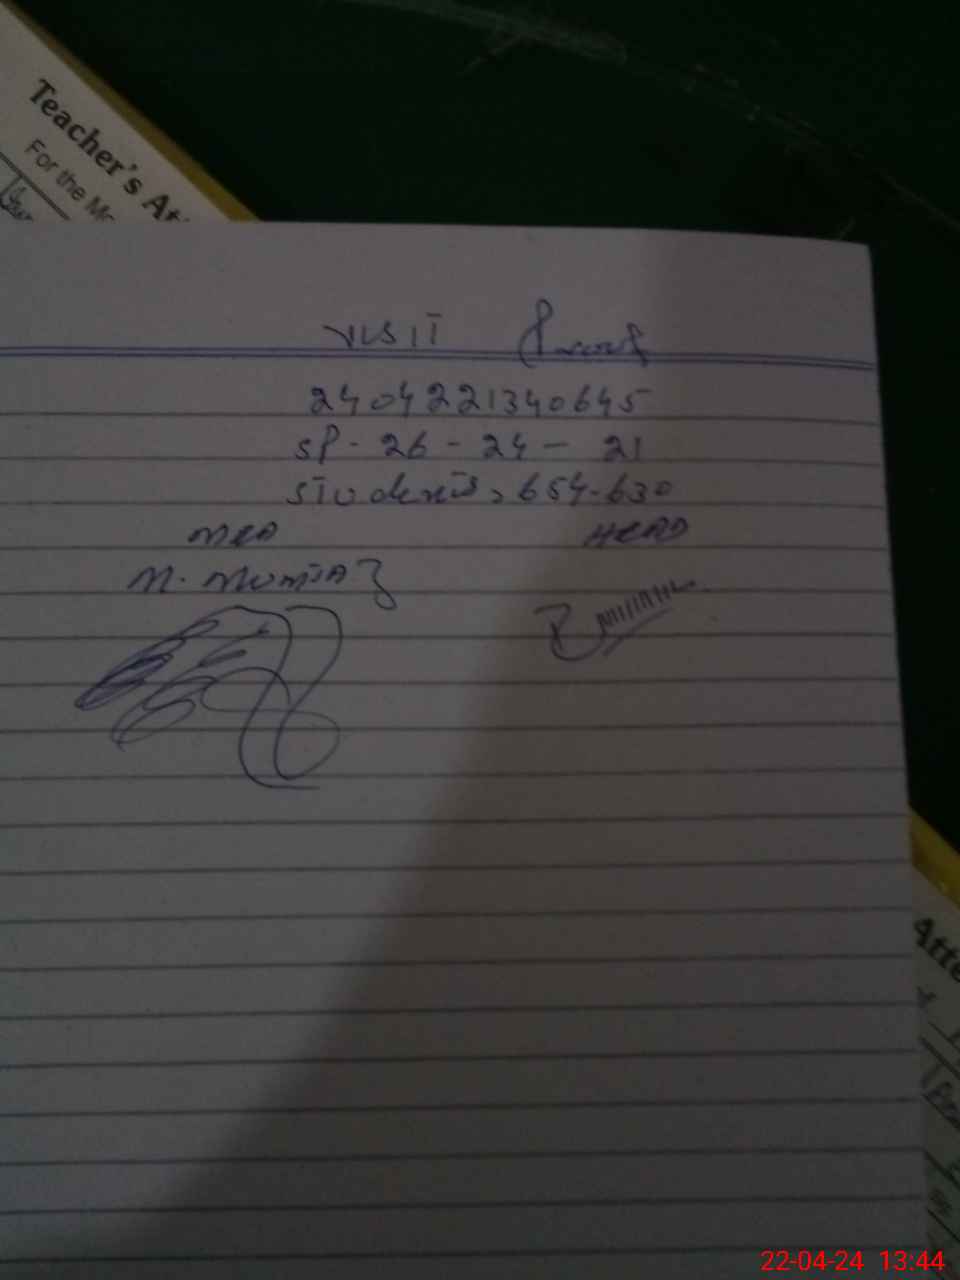 Teacher's At
For the Mo
VISIT Proof
2404221340645
SP - 26 - 24 - 21
STUdents, 654-630
MEA HEAD
M. MUMTAZ
Atte
22-04-24 13:44